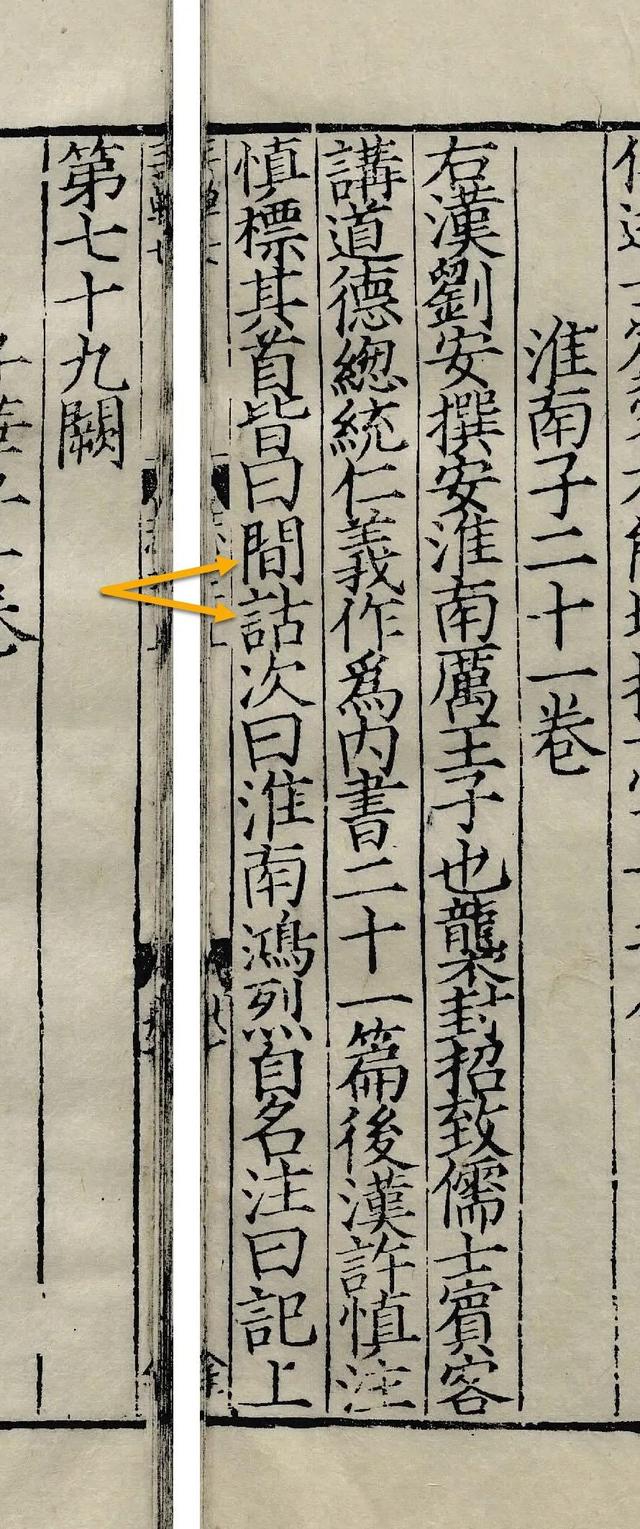 淮南子二十一卷
右漢劉安撰安淮南厲王子也襲封招致儒士賓客
講道德緫統仁義作爲内書二十一篇後漢許慎注
慎標其首皆曰間詁次曰淮南鴻烈自名注曰記上
第七十九闕